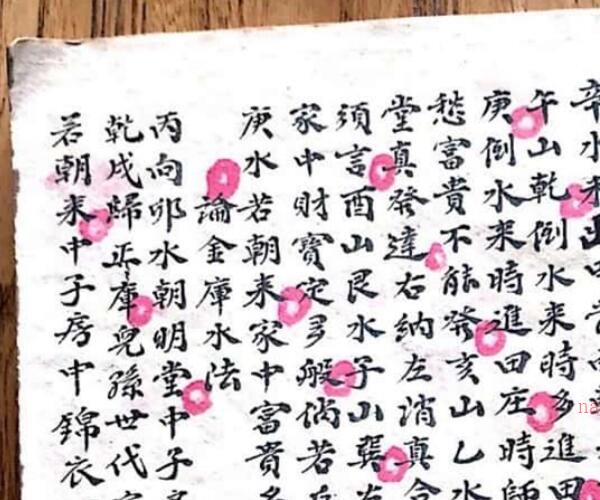 辛水來山
午山乾倒水来時多進田
庚倒水来時進田庄時師
愁富貴不能發亥山乙水
堂真發達右納左消真合
須言酉山艮水子山巽
家中財寳定多般倘若
庚水若朝来家中富貴
論金庫水法
丙向卯水朝明堂中子
乾戌歸正庫兒孫世代
若朝来中子房中錦衣
na